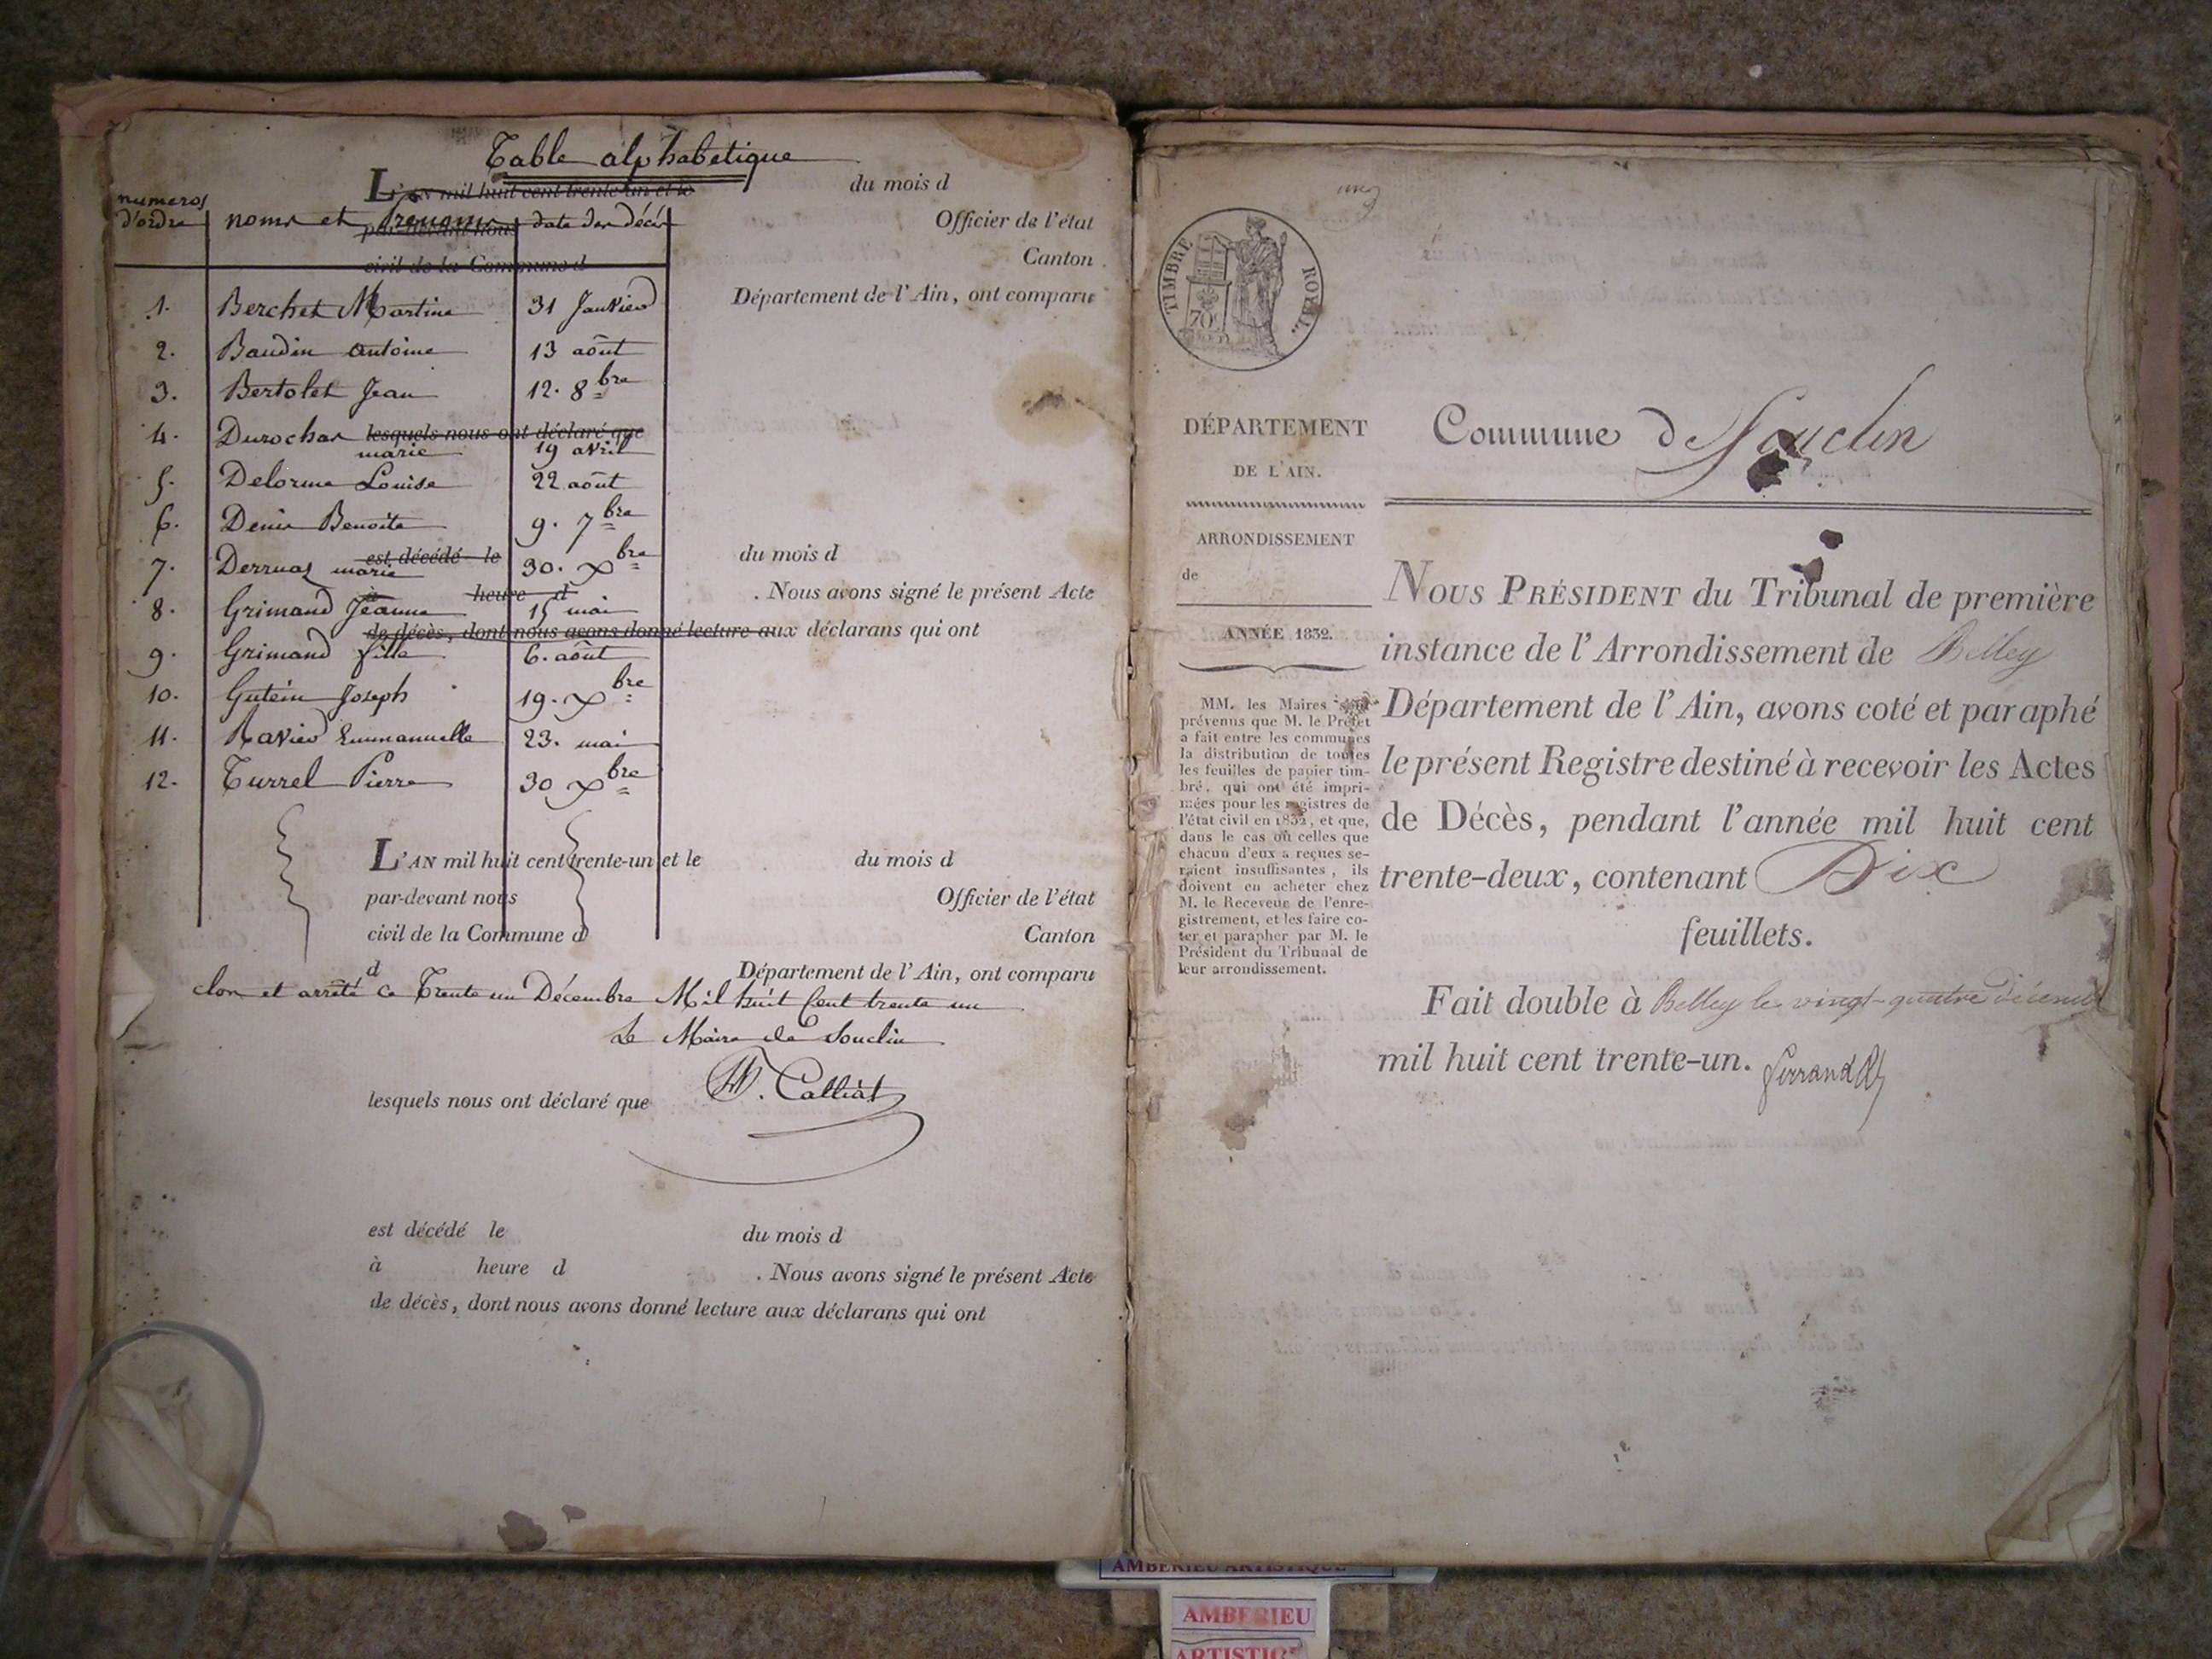 Table alphabetique
L'AN mil huit cent trente-un et le du mois d
numeros
d'ordre noms et Prenoms date des décès
par-devant nous Officier de l'état
civil de la Commune d Canton
Département de l'Ain, ont comparu
1. Berchet Martine 31 Janvier
2. Baudin antoine 13 août
3. Bertolet Jean 12. 8bre
lesquels nous ont déclaré que
4. Durochat marie 19 avril
5. Delorme Louise 22 août
6. Denis Benoite 9. 7bre
est décédé le du mois d
7. Derruaz marie 30. Xbre
à heure d . Nous avons signé le présent Acte
8. Grimand Jeanne 15 mai
de décès, dont nous avons donné lecture aux déclarans qui ont
9. Grimand fille 6. août
10. Gutein Joseph 19. Xbre
11. Ravier Emmanuelle 23. mai
12. Turrel Pierre 30 Xbre
L'AN mil huit cent trente-un et le du mois d
par-devant nous Officier de l'état
civil de la Commune d Canton
d Département de l'Ain, ont comparu
clos et arrêté ce Trente un Décembre Mil huit Cent trente un
Le Maire de Souclin
lesquels nous ont déclaré que Calliat
est décédé le du mois d
à heure d . Nous avons signé le présent Acte
de décès, dont nous avons donné lecture aux déclarans qui ont
TIMBRE ROYAL.
70c.
DÉPARTEMENT
DE L'AIN.
ARRONDISSEMENT
de
ANNÉE 1832.
MM. les Maires sont
prévenus que M. le Préfet
a fait entre les communes
la distribution de toutes
les feuilles de papier tim-
bré, qui ont été impri-
mées pour les registres de
l'état civil en 1832, et que,
dans le cas où celles que
chacun d'eux a reçues se-
raient insuffisantes, ils
doivent en acheter chez
M. le Receveur de l'enre-
gistrement, et les faire co-
ter et parapher par M. le
Président du Tribunal de
leur arrondissement.
Commune de Souclin
NOUS PRÉSIDENT du Tribunal de première
instance de l'Arrondissement de Belley
Département de l'Ain, avons coté et paraphé
le présent Registre destiné à recevoir les Actes
de Décès, pendant l'année mil huit cent
trente-deux, contenant Dix
feuillets.
Fait double à Belley le vingt-quatre décembre
mil huit cent trente-un.
AMBERIEU ARTISTIQUE
AMBERIEU